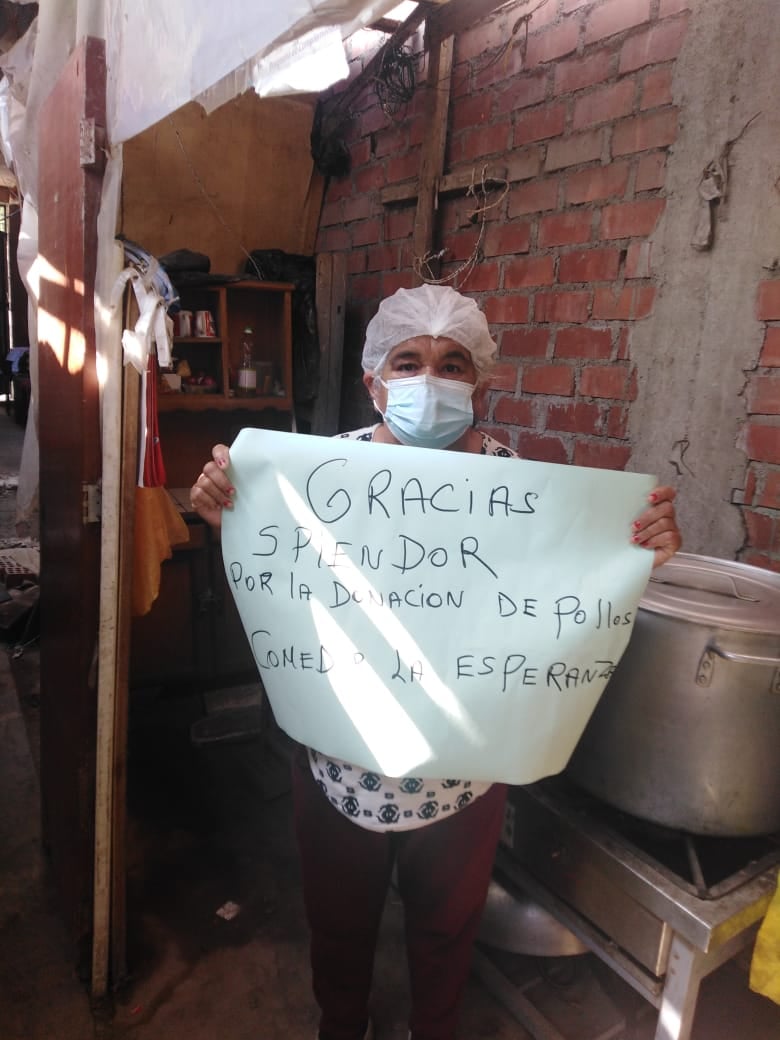 GRACIAS
SPlENDOR
POR lA DONACION DE POllOS
COMEDO LA ESPERANZA